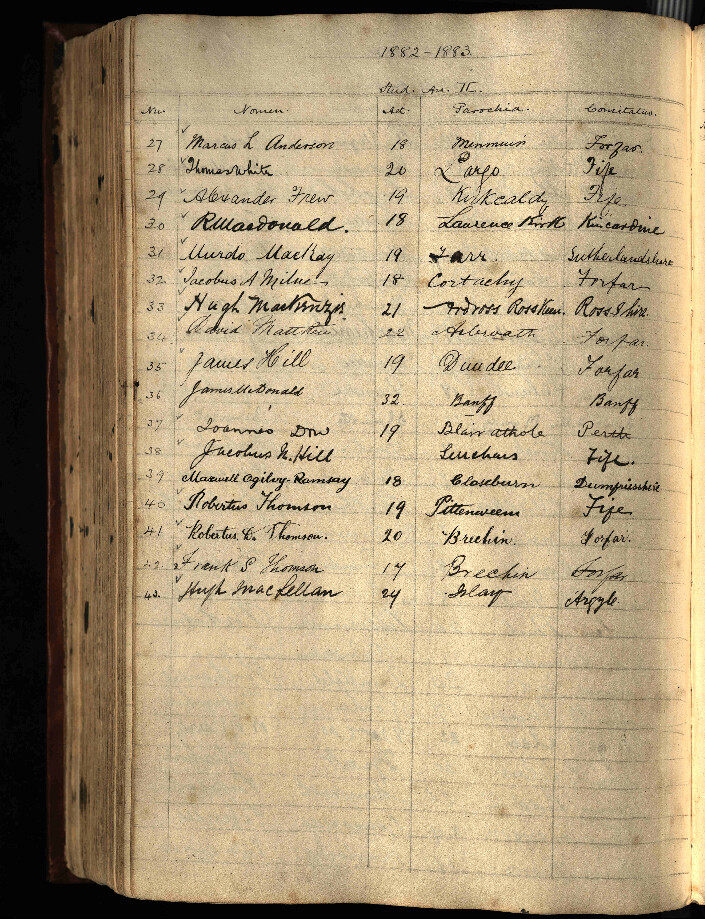 1882-1883.
Stud. An. II.
No. Nomen. Aet. Parochia. Comitatus.
27 Marcus L Anderson 18 Menmuir Forfar.
28 Thomas White 20 Largo Fife
29 Alexander Frew 19 Kirkcaldy Fife
30 R Macdonald. 18 Laurence Kirk Kincardine
31 Murdo Mackay 19 Farr Sutherlandshire
32 Jacobus A Milne 18 Cortachy Forfar
33 Hugh MacKenzie 21 Ardross Rosskeen. Ross Shire.
34 David Matthew 22 Arbroath Forfar.
35 James Hill 19 Dundee Forfar
36 James McDonald 32 Banff Banff
37 Ioannes Dow 19 Blair athole Perth
38 Jacobus N. Hill Leuchars Fife.
39 Maxwell Ogilvy-Ramsay 18 Closeburn Dumfriesshire
40 Robertus Thomson 19 Pittenweem Fife
41 Robertus D. Thomson. 20 Brechin. Forfar.
42 Frank S Thomson 17 Brechin Forfar
43. Hugh MacLellan 24 Islay Argyle.